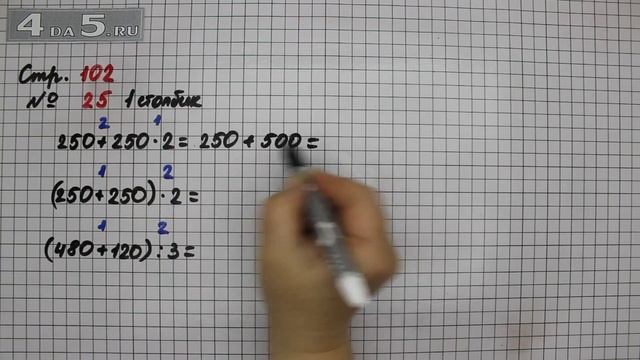 4DA5.RU
Стр. 102
№ 25 1 столбик
2 1
250+250·2= 250+500=
1 2
(250+250)·2=
1 2
(480+120):3=